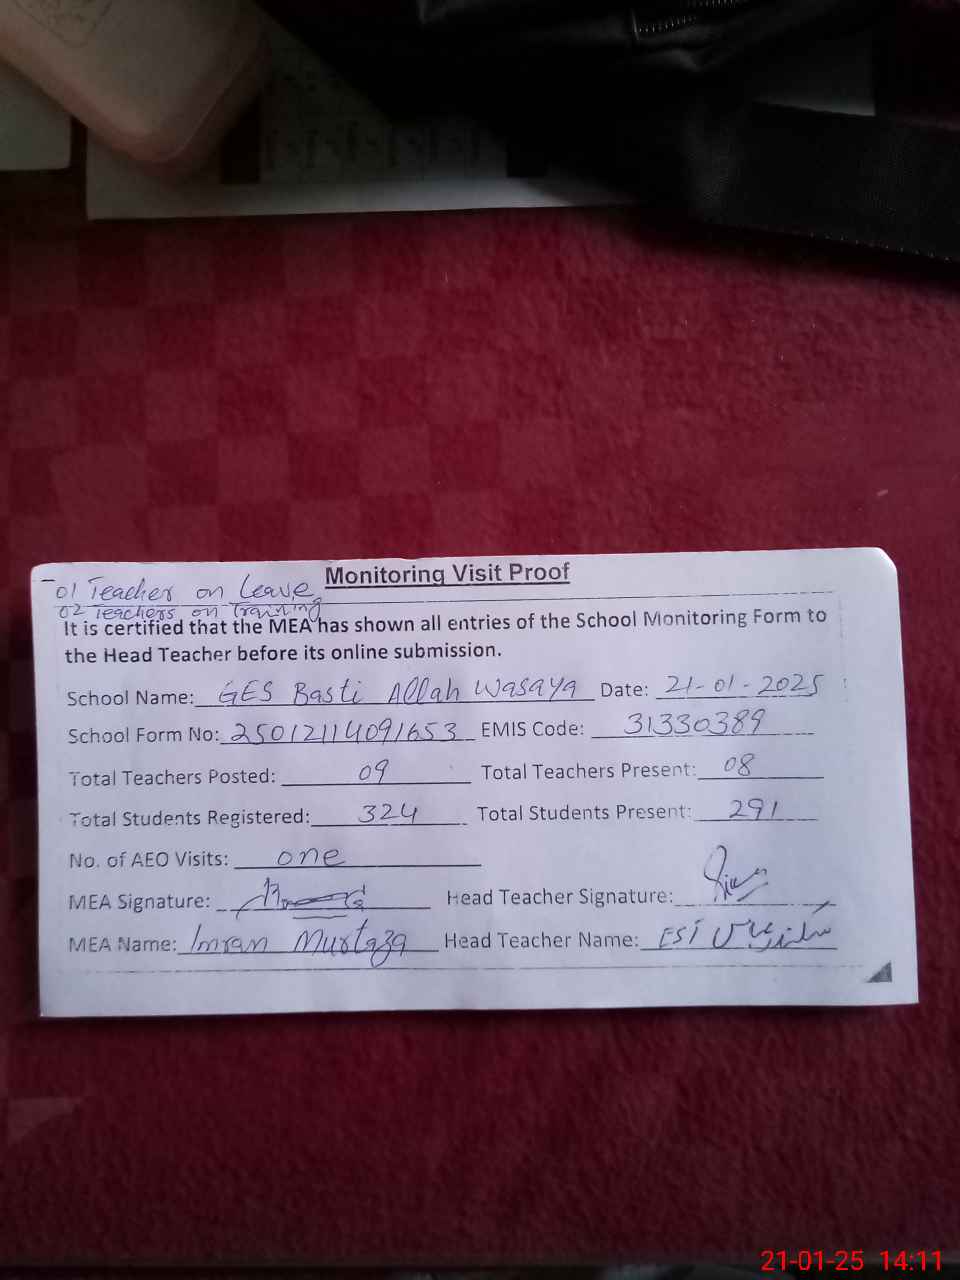 Monitoring Visit Proof
01 Teacher on Leave
02 Teachers on Training
It is certified that the MEA has shown all entries of the School Monitoring Form to
the Head Teacher before its online submission.
School Name: GES Basti Allah Wasaya Date: 21-01-2025
School Form No: 25012114091653 EMIS Code: 31330389
Total Teachers Posted: 09 Total Teachers Present: 08
Total Students Registered: 324 Total Students Present: 291
No. of AEO Visits: one
MEA Signature: Head Teacher Signature:
MEA Name: Imran Murtaza Head Teacher Name: ESI
21-01-25 14:11